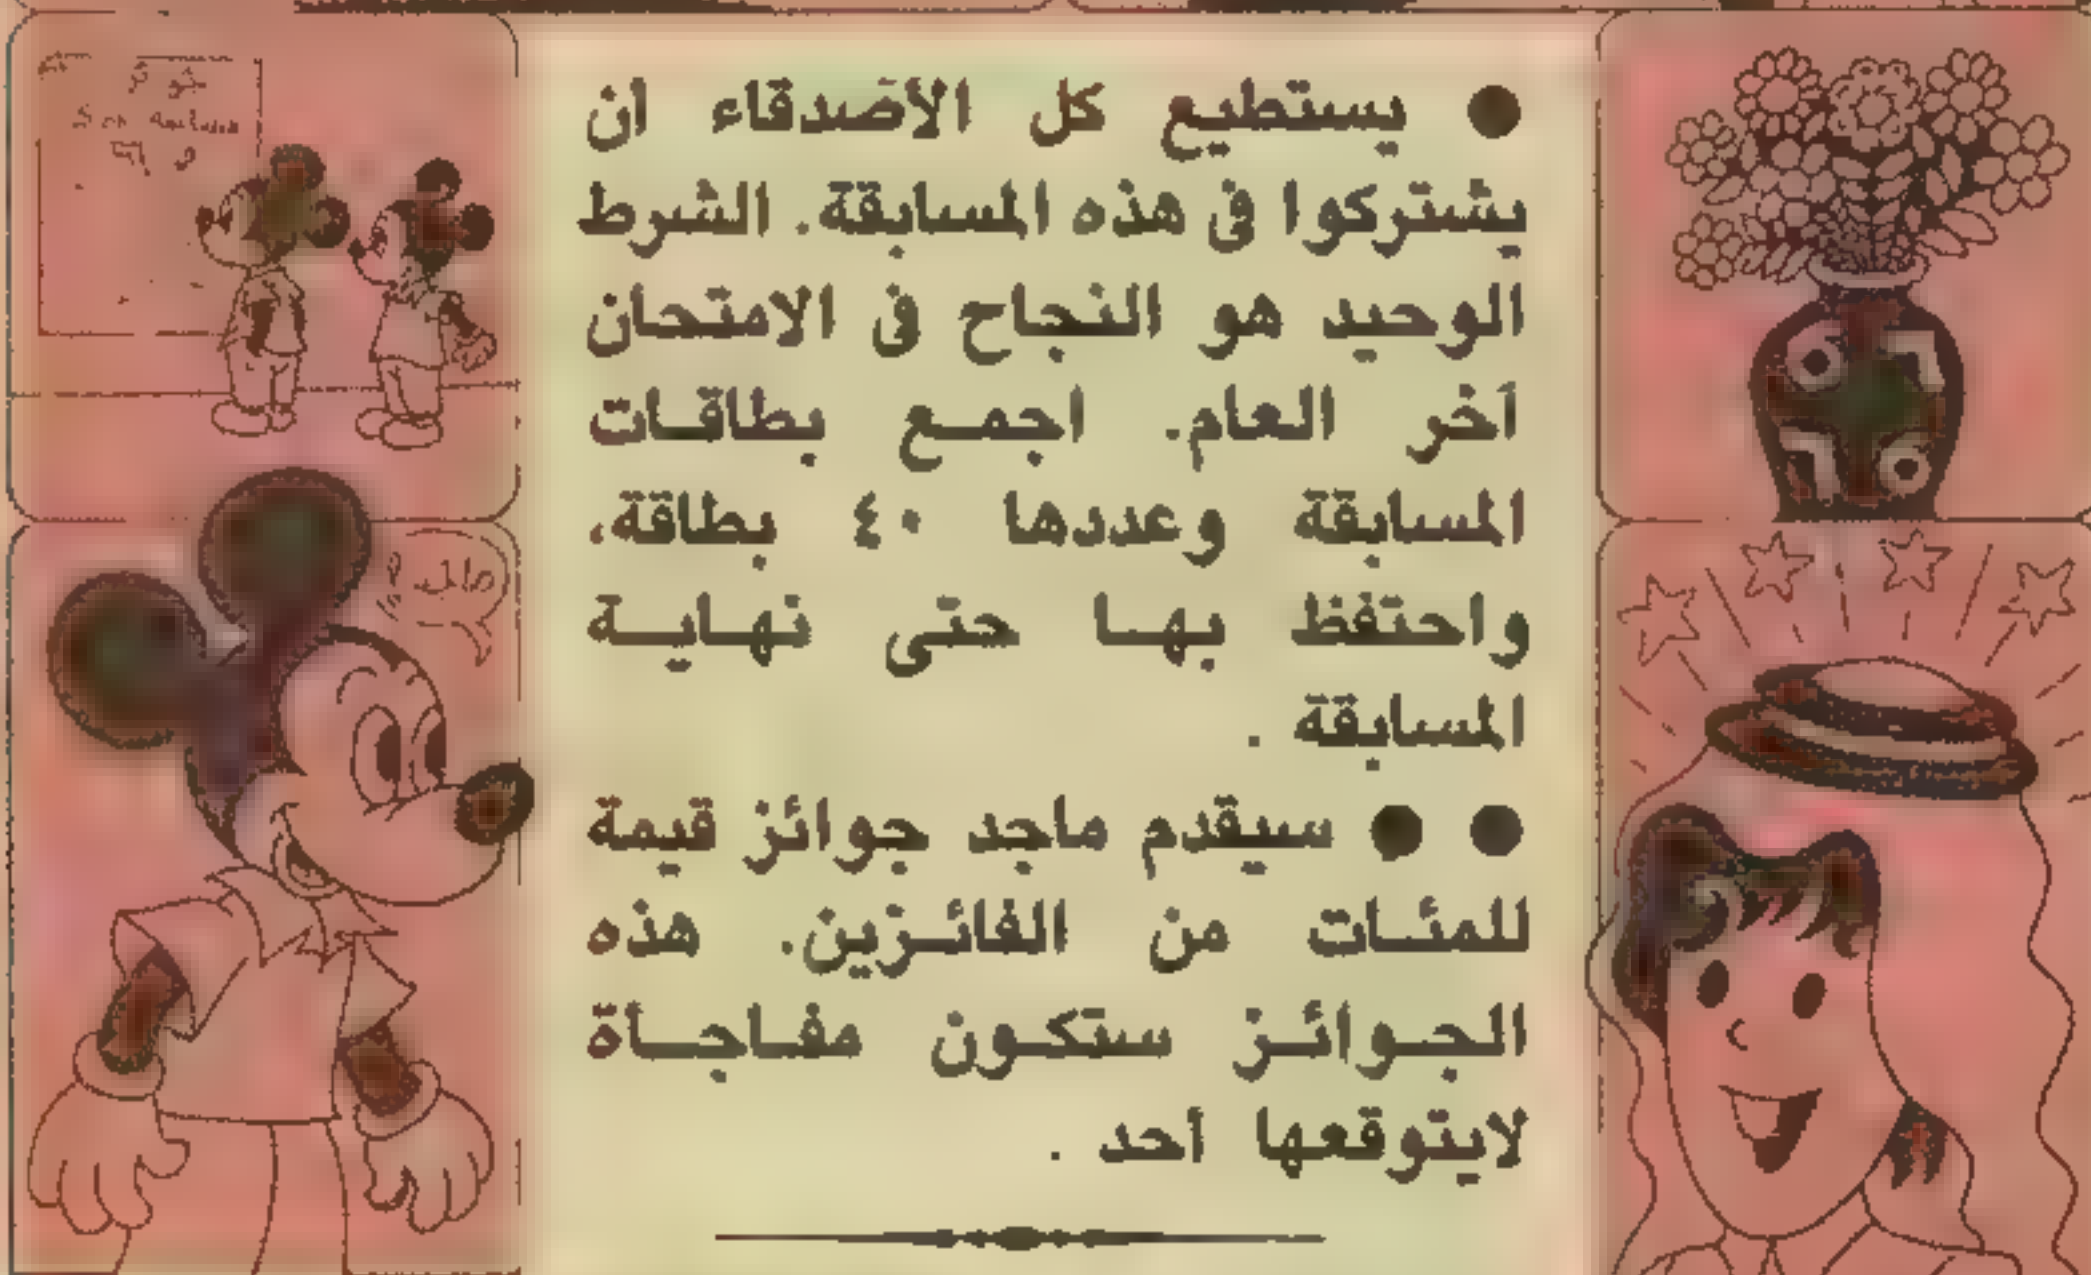 ● يستطيع كل الأصدقاء ان
يشتركوا فى هذه المسابقة. الشرط
الوحيد هو النجاح فى الامتحان
آخر العام. اجمـع بطاقـات
المسابقة وعددها ٤٠ بطاقة،
واحتفظ بهـا حتى نهايـة
المسابقة .
● ● سيقدم ماجد جوائز قيمة
للمئـات من الفائـزين. هذه
الجـوائـز ستكـون مفـاجـأة
لايتوقعها أحد .